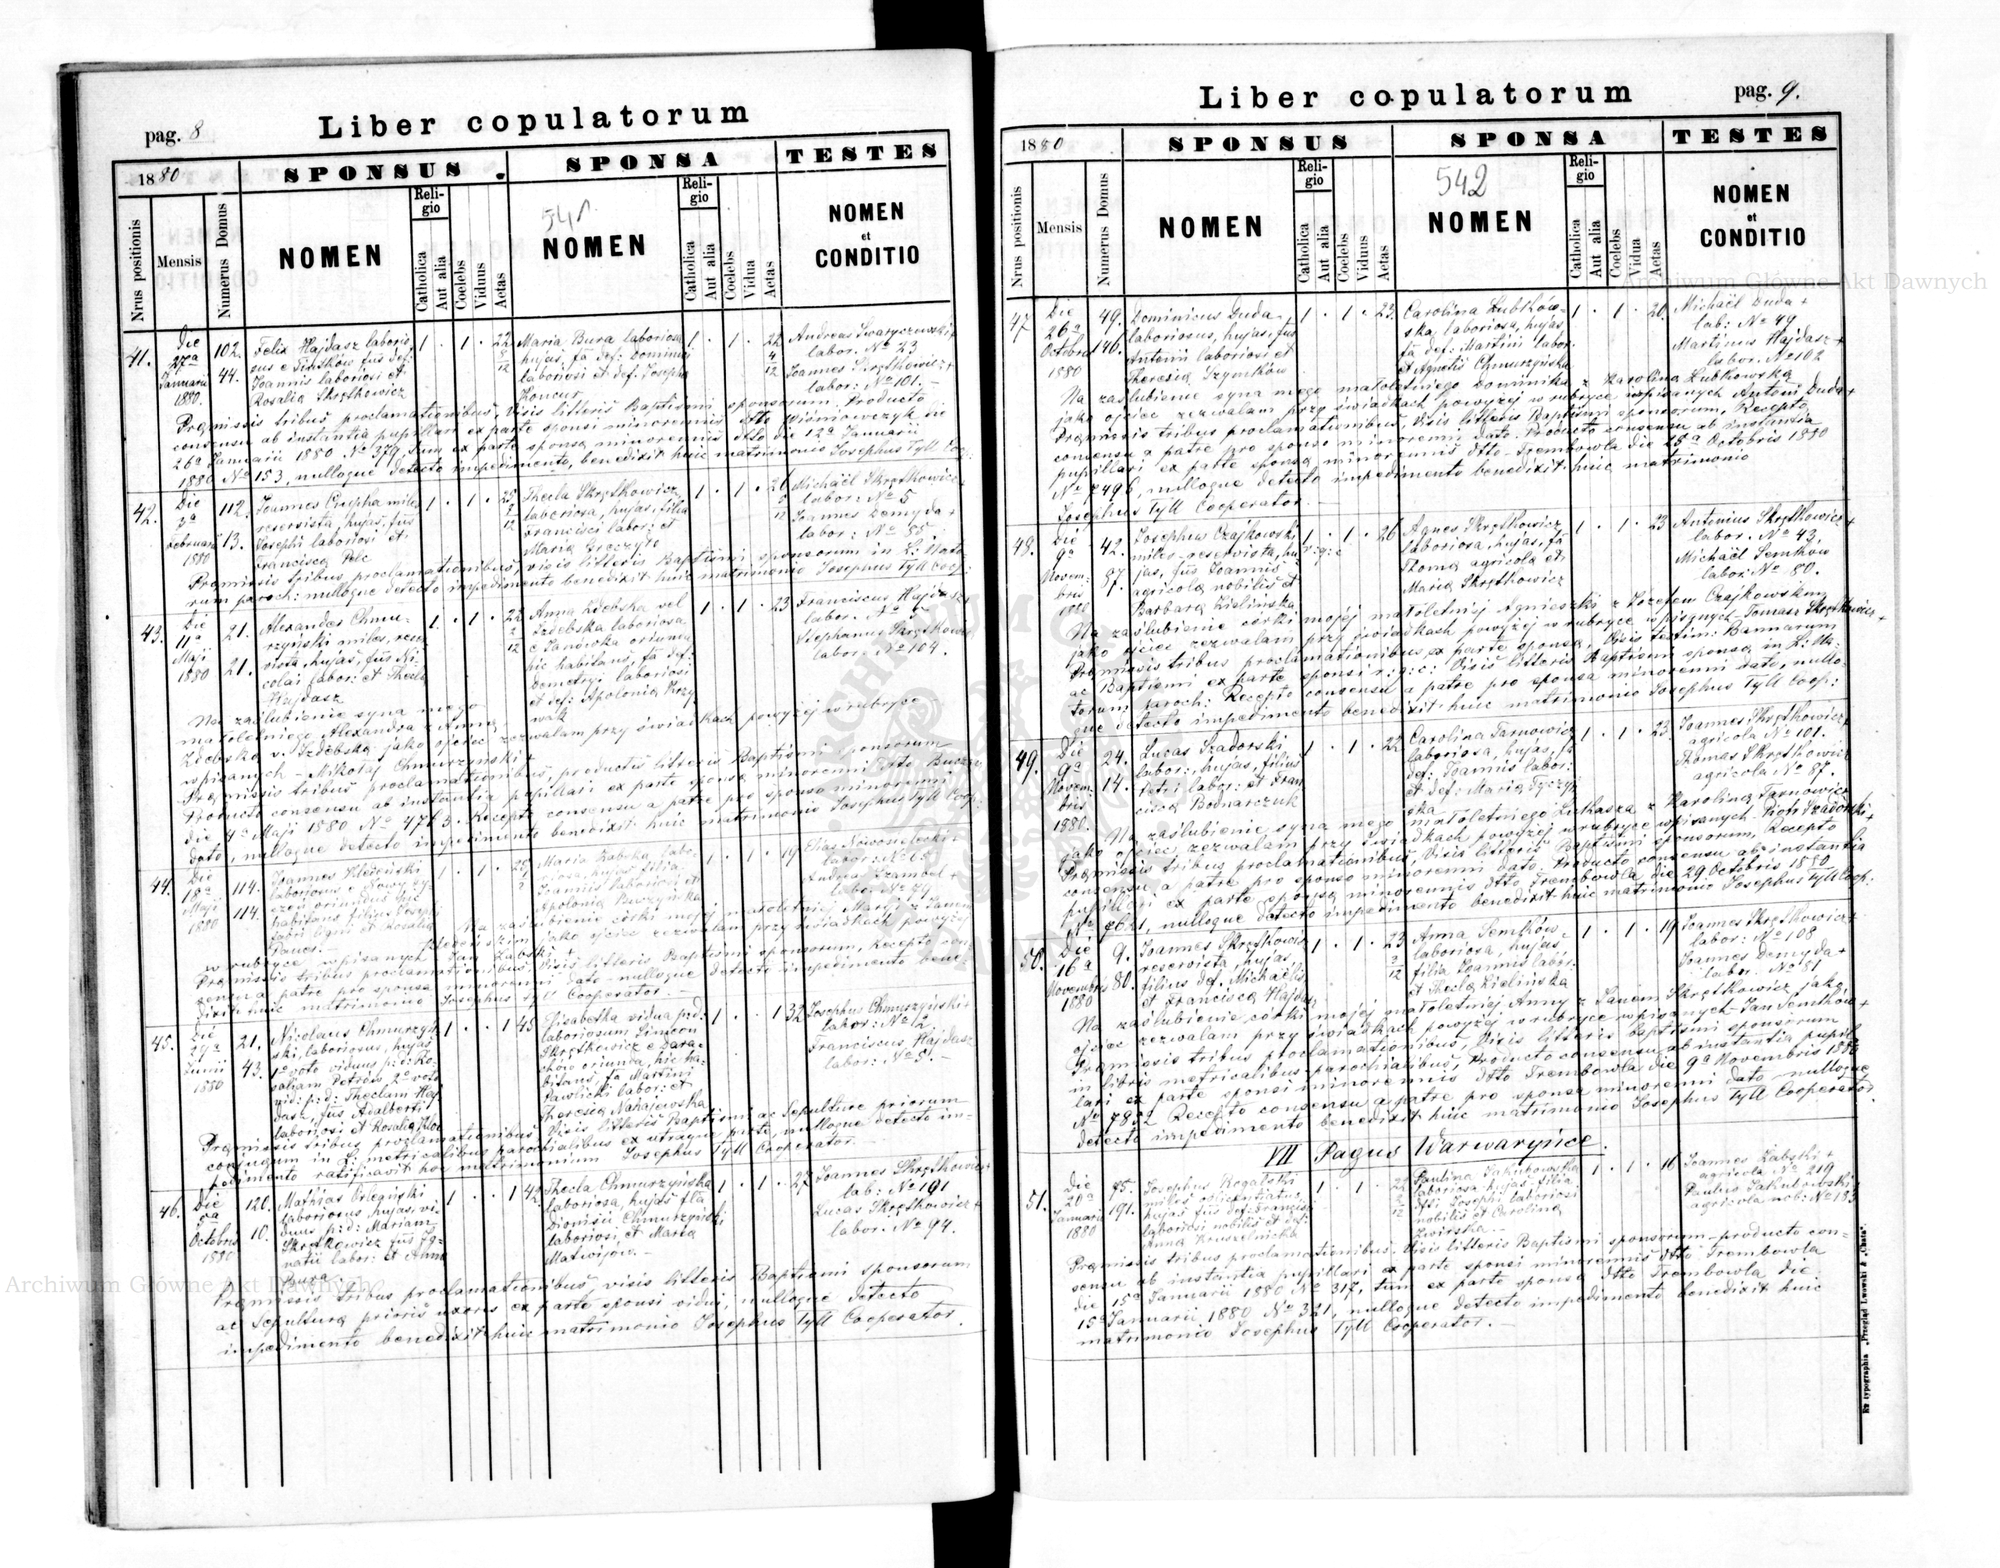 pag. 8
Liber copulatorum
1880
SPONSUS.
SPONSA
TESTES
Nrus positionis
Mensis
Numerus Domus
NOMEN
Religio
Catholica
Aut alia
Coelebs
Viduus
Aetas
541
NOMEN
Religio
Catholica
Aut alia
Coelebs
Vidua
Aetas
NOMEN
et
CONDITIO
41.
Die
27a
Januarii
1880.
102.
44.
Felix Hajdasz laborio
Joannis laboriosi et
Rosalia Skrętkowicz
1 . 1 . 22
Maria Bura laboriosa
hujas, fa def: Dominici
laboriosi et def. Josepha
Koncur
1 . 1 . 22
labor. No 23
labor: No 101. –
Praemissis tribus proclamationibus, visis litteris Baptismi sponsorum. Producto
consensu ab instantia pupillari ex parte sponsi minorennis
26a Januarii 1880 No 379, tum ex parte sponsa minorennis dtto die 12a Januarii
1880 No 153, nulloque detecto impedimento, benedixit huic matrimonio Josephus Tyll Coop:
42.
Die
3a
Februarii
1880
112.
13.
reservista, hujas, fus
Josephi laboriosi et
Francisca Pelc
1 . 1 . 25
Thecla Skrętkowicz
laboriosa, hujas, filia
Francisci labor: et
1 . 1 .
Michaël Skrętkowicz +
labor: No 5
Joannes Demyda +
labor: No 85.
Praemissis tribus proclamationibus, visis litteris Baptismi sponsorum in L: Nato-
rum paroch: nulloque detecto impedimento benedixit huic matrimonio Josephus Tyll Coop:
43.
Die
11a
Maji
1880
21.
21.
Alexander Chmu-
rzyński miles, reser
vista, hujas, fus Ni-
colai labor: et Thecla
Hajdasz
1 . 1 .
Anna Zdebska vel
Izdebska laboriosa
e Janówka oriunda
hic habitans, fa def:
Demetryi laboriosi
et def: Apolonia Przy
1 . 1 . 23
Franciscus Hajdasz
Stephanus Skrętkowicz
labor. No 104.
Na zaślubienie syna mego
małoletniego Alexandra z Anną
Zdebską v. Izdebską jako ojciec zezwalam przy świadkach powyżej w rubryce
wpisanych – Mikołaj Chmurzyński +
Praemissis tribus proclamationibus, productis litteris Baptismi sponsorum
Producto consensu ab instantia pupillari ex parte sponsa minorenni
die 4a Maji 1880 No 4763. Recepto consensu a patre pro sponso minorenni
dato, nulloque detecto impedimento benedixit huic matrimonio Josephus Tyll Coop:
44.
Die
18a
Maji
1880
114.
114.
laboriosus e Nowy
oriundus hic
habitans filius Josephi
1 . 1 . 25
Maria Żabska, labo-
riosa, hujas, filia
Joannis laboriosi et
Apolonia Buczyńska
1 . 1 . 19
Andreas Szambel +
labor: No 79
Na zaślubienie córki mojej małoletniej Maryi z Janem
jako ojciec zezwalam przy świadkach powyżej
w rubryce wpisanych Jan Żabski +
Praemissis tribus proclamationibus. Visis litteris Baptismi sponsorum, Recepto con-
sensu a patre pro sponsa minorenni dato nulloque detecto impedimento bene-
dixit huic matrimonio Josephus Tyll Cooperator. –
45.
Die
Junii
1880
21.
43.
Nicolaus Chmurzyń-
ski, laboriosus, hujas
p:d: Theclam Haj
dasz, fus Adalberti
laboriosi et Rosalia
1 . . 1 45
Elisabetha vidua p:d:
laboriosum Simeon
Skrętkowicz e Dara-
chów oriunda, hic ha-
bitans, fa Martini
Pawlicki labor: et
Theresia Nahajewska
1 . . 1 32
Josephus Chmurzyński +
labor: No 12
Franciscus Hajdasz
labor: No 5. –
Praemissis tribus proclamationibus. Visis litteris Baptismi ac Sepultura priorum
conjugum in L: metricalibus parochialibus ex utraque parte, nulloque detecto im-
pedimento ratificavit hoc matrimonium Josephus Tyll Cooperator. –
46.
Die
Octobris
1880
120.
10.
laboriosus, hujas, vi-
duus p:d: Mariam
Skrętkowicz fus Ig-
natii labor: et Anna
Bura
1 . . 1 42
Thecla Chmurzyńska
laboriosa, hujas fla
Dionisii Chmurzyński
laboriosi et Maria
Matwijow. –
1 . 1 . 27
Joannes Skrętkowicz +
lab: No 101
Lucas Skrętkowicz +
labor. No 94.
Praemissis tribus proclamationibus, visis litteris Baptismi sponsorum
ac Sepultura prioris uxoris ex parte sponsi vidui, nulloque detecto
impedimento benedixit huic matrimonio Josephus Tyll Cooperator.
Liber copulatorum
pag. 9.
1880
SPONSUS
SPONSA
TESTES
Nrus positionis
Mensis
Numerus Domus
NOMEN
Religio
Catholica
Aut alia
Coelebs
Viduus
Aetas
542
NOMEN
Religio
Catholica
Aut alia
Coelebs
Vidua
Aetas
NOMEN
et
CONDITIO
47
Die
26a
Octobris
1880
49.
146.
Dominicus Duda,
laboriosus, hujas, fus
Antonii laboriosi et
Theresia Szymków
1 . 1 . 23.
Carolina Łubków-
ska, laboriosa, hujas,
fa def: Martini labor.
et Agnetis Chmurzyńska
1 . 1 . 20.
Michaël Duda +
lab: No 49
Martinus Hajdasz +
labor. No 102
Na zaślubienie syna mego małoletniego Dominika z Karoliną Łubkowską
jako ojciec zezwalam przy świadkach powyżej w rubryce wpisanych Antoni Duda +
Praemissis tribus proclamationibus, Visis litteris Baptismi sponsorum, Recepto
consensu a patre pro sponso minorenni dato. Producto consensu ab instantia
pupillari ex parte sponsa minorennis dtto Trembowla die 25a Octobris 1880
No 7496, nulloque detecto impedimento benedixit huic matrimonio
Josephus Tyll Cooperator. –
48.
Die
9a
Novem-
bris
1880
42.
87.
Josephus Czajkowski
miles-reservista, hu-
jas, fus Joannis
agricola nobilis et
Barbara Zielińska
1 . 1 . 26
r:g:c
Agnes Skrętkowicz
laboriosa, hujas, fa
Thoma agricola et
Maria Skrętkowicz
1 . 1 . 23
Antonius Skrętkowicz +
labor. No 43,
Michaël Semków
labor: No 80.
Na zaślubienie córki mojej małoletniej Agnieszki z Józefem Czajkowskim
jako ojciec zezwalam przy świadkach powyżej w rubryce wpisanych Tomasz Skrętkowicz +
Praemissis tribus proclamationibus ex parte sponsa, Visis testim: Bannorum
ac Baptismi ex parte sponsi r:g:c: Visis litteris Baptismi sponsa in L: Na-
torum paroch: Recepto consensu a patre pro sponsa minorenni dato, nullo-
que detecto impedimento benedixit huic matrimonio Josephus Tyll Coop:
49.
Die
9a
Novem-
bris
1880.
24.
14.
Lucas Szadorski
labor:, hujas, filius
Petri labor: et Fran
cisca Bodnarczuk
1 . 1 . 22
Carolina Tarnowicz
laboriosa, hujas, fa
def: Joannis labor:
et def: Maria Tyczyń
ska
1 . 1 . 23
Joannes Skrętkowicz +
agricola No 101.
Thomas Skrętkowicz
agricola No 87.
Na zaślubienie syna mego małoletniego Łukasza z Karoliną Tarnowicz
jako ojciec zezwalam przy świadkach powyżej w rubryce wpisanych. Piotr Szadorski +
Praemissis tribus proclamationibus, Visis litteris Baptismi sponsorum, Recepto
consensu a patre pro sponso minorenni dato, Producto consensu ab instantia
pupillari ex parte sponsa minorennis dtto Trembowla die 29 Octobris 1880
nulloque detecto impedimento benedixit huic matrimonio Josephus Tyll Coop:
50.
Die
16a
Novembris
1880
9.
80.
Joannes Skrętkowicz
reservista, hujas,
filius def. Michaëlis
et Francisca Hajdasz
1 . 1 . 23
Anna Semków
laboriosa, hujas,
filia Joannis labor:
et Thecla Zielińska
1 . 1 . 19
Joannes Skrętkowicz +
labor: No 108
Joannes Demyda +
labor. No 81
Na zaślubienie córki mojej małoletniej Anny z Janem Skrętkowicz jako
ojciec zezwalam przy świadkach powyżej w rubryce wpisanych – Jan Semków +
Praemissis tribus proclamationibus, Visis litteris baptismi sponsorum
in libris metricalibus parochialibus, Producto consensu ab instantia pupil-
lari ex parte sponsi minorennis dtto Trembowla die 9a Novembris 1880
No 7832 Recepto consensu a patre pro sponsa minorenni dato nulloque
detecto impedimento benedixit huic matrimonio Josephus Tyll Cooperator
VII Pagus Warwaryńce.
51.
Die
20a
Januarii
1880
95.
191.
Josephus Rogalski
miles
hujas fus def: Francisci
laboriosi nobilis et def:
Anna Kruszelnicka
1 . 1 . 22
Paulina Jakubowska
laboriosa hujas, filia
def: Josephi laboriosi
nobilis et Carolina
Zwirska –
1 . 1 . 16
Joannes Żabski +
agricola No 219
Paulus Jakubowski
agricola nob: No 183
Praemissis tribus proclamationibus. Visis litteris Baptismi sponsorum – producto con-
sensu ab instantia pupillari ex parte sponsi minorennis dtto Trembowla
die 15a Januarii 1880 No 317, tum ex parte sponsa dtto Trembowla die
15a Januarii 1880 No 321, nulloque detecto impedimento benedixit huic
matrimonio Josephus Tyll Cooperator. –
Ex typographia „Przegląd Lwowski & „Chata".
Archiwum Główne Akt Dawnych
Archiwum Główne Akt Dawnych